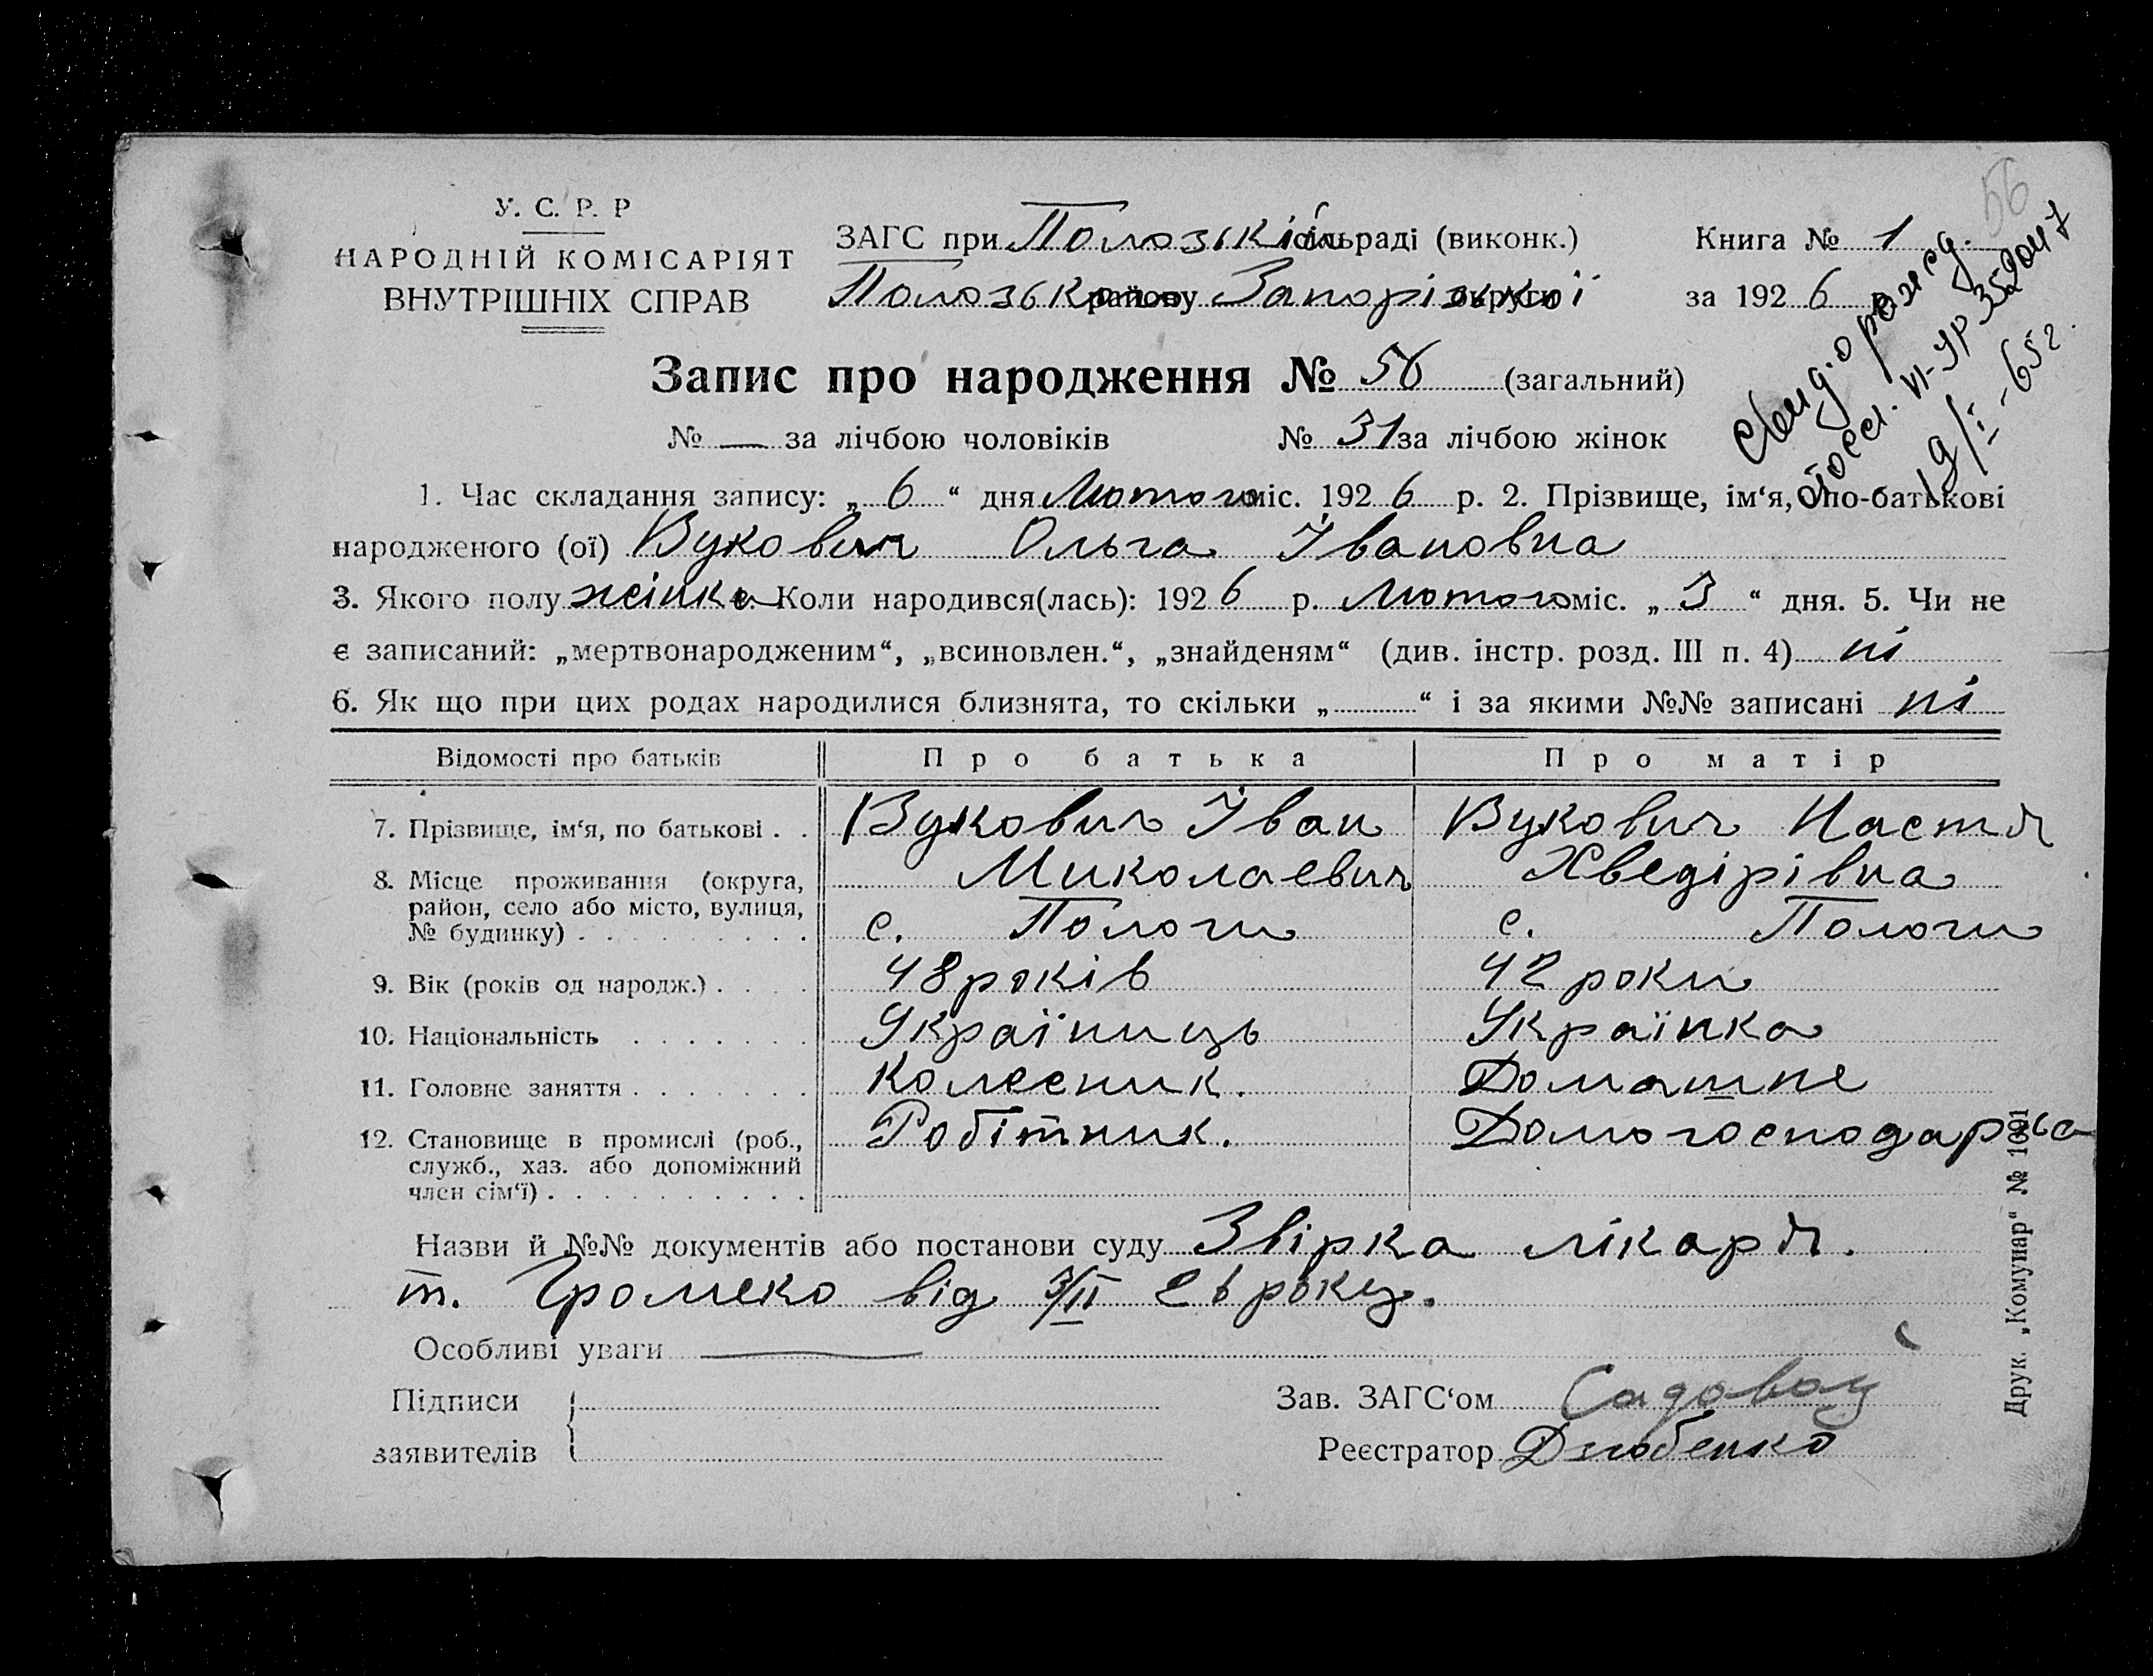 56
У. С. Р. Р
НАРОДНІЙ КОМІСАРІЯТ
ВНУТРІШНІХ СПРАВ
ЗАГС при Полозькій сільраді (виконк.)
Полозького району Запорізької округи
Книга № 1
за 1926 р.
Запис про народження № 56 (загальний)
№ — за лічбою чоловіків № 31 за лічбою жінок
Свид. о рожд.
VI-УР 352047
19/I-65г.
1. Час складання запису: „ 6 “ дня Лютого міс. 1926 р. 2. Прізвище, ім‘я, по-батькові
народженого (ої) Вукович Ольга Івановна
3. Якого полу жінка 4. Коли народився(лась): 1926 р. Лютого міс. „ 3 “ дня. 5. Чи не
є записаний: „мертвонародженим“, „всиновлен.“, „знайденям“ (див. інстр. розд. III п. 4) ні
6. Як що при цих родах народилися близнята, то скільки „ “ і за якими №№ записані ні
Відомості про батьків Про батька Про матір
7. Прізвище, ім‘я, по батькові . . Вукович Іван Миколаевич Вукович Настя Хведірівна
8. Місце проживання (округа, район, село або місто, вулиця, № будинку) . с. Пологи с. Пологи
9. Вік (років од народж.) . 48 років 42 роки
10. Національність Українищь Українка
11. Головне заняття . Колесник. Домашне
12. Становище в промислі (роб., служб., хаз. або допоміжний член сім‘ї) . Робітник. Домогосподарька
Назви й №№ документів або постанови суду Звірка лікаря.
т. Громеко від 3/II 26 року.
Особливі уваги —
Підписи
заявителів
Зав. ЗАГС‘ом Садовой
Реєстратор Дзюбенко
Друк. „Комунар“ № 1091